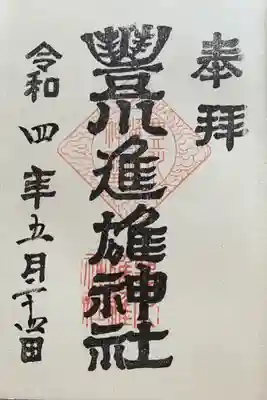 奉拝
豊川進雄神社
令和四年五月十四日